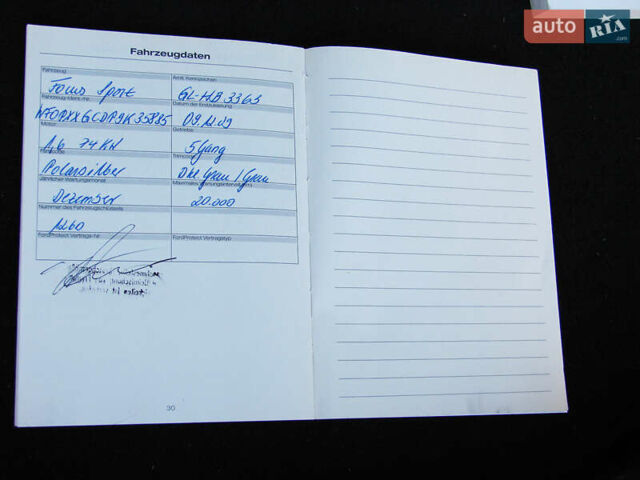 auto RIA.com
Fahrzeugdaten
Fahrzeug Amtl. Kennzeichen
Focus Sport GL-HB 3363
Fahrzeug-Ident.-Nr. Datum der Erstzulassung
09.12.09
Motor Getriebe
1,6 74 KW 5 Gang
Farbcode Trimcode
Polarsilber Dkl Grau / Grau
Jährlicher Wartungsmonat Maximales Wartungsintervall (km)
Dezember 20.000
Nummer des Fahrzeugschlüssels
1260
FordProtect Vertrags-Nr. FordProtect Vertragstyp
30